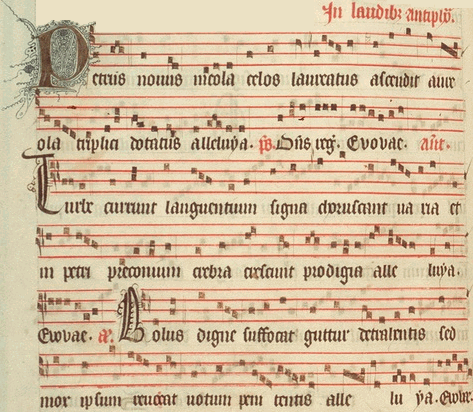 In laudibz antipho.
Petrus nouus incola celos laureatus ascendit aure
ola triplici dotatus alleluya. ps. Dns reg. Evovae. ant.
Turbe currunt languentium signa choruscant ua ria et
in petri preconium crebra crescunt prodigia alle luya.
Evovae. Dolus digne suffocat guttur detrahentis sed
mox ipsum reuocat uotum peni tentis alle lu ya. Evovae